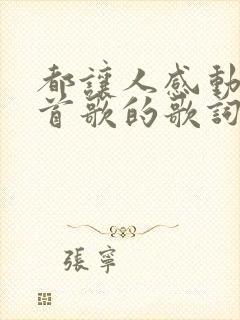 都讓人感動
首歌的歌詞
張寧